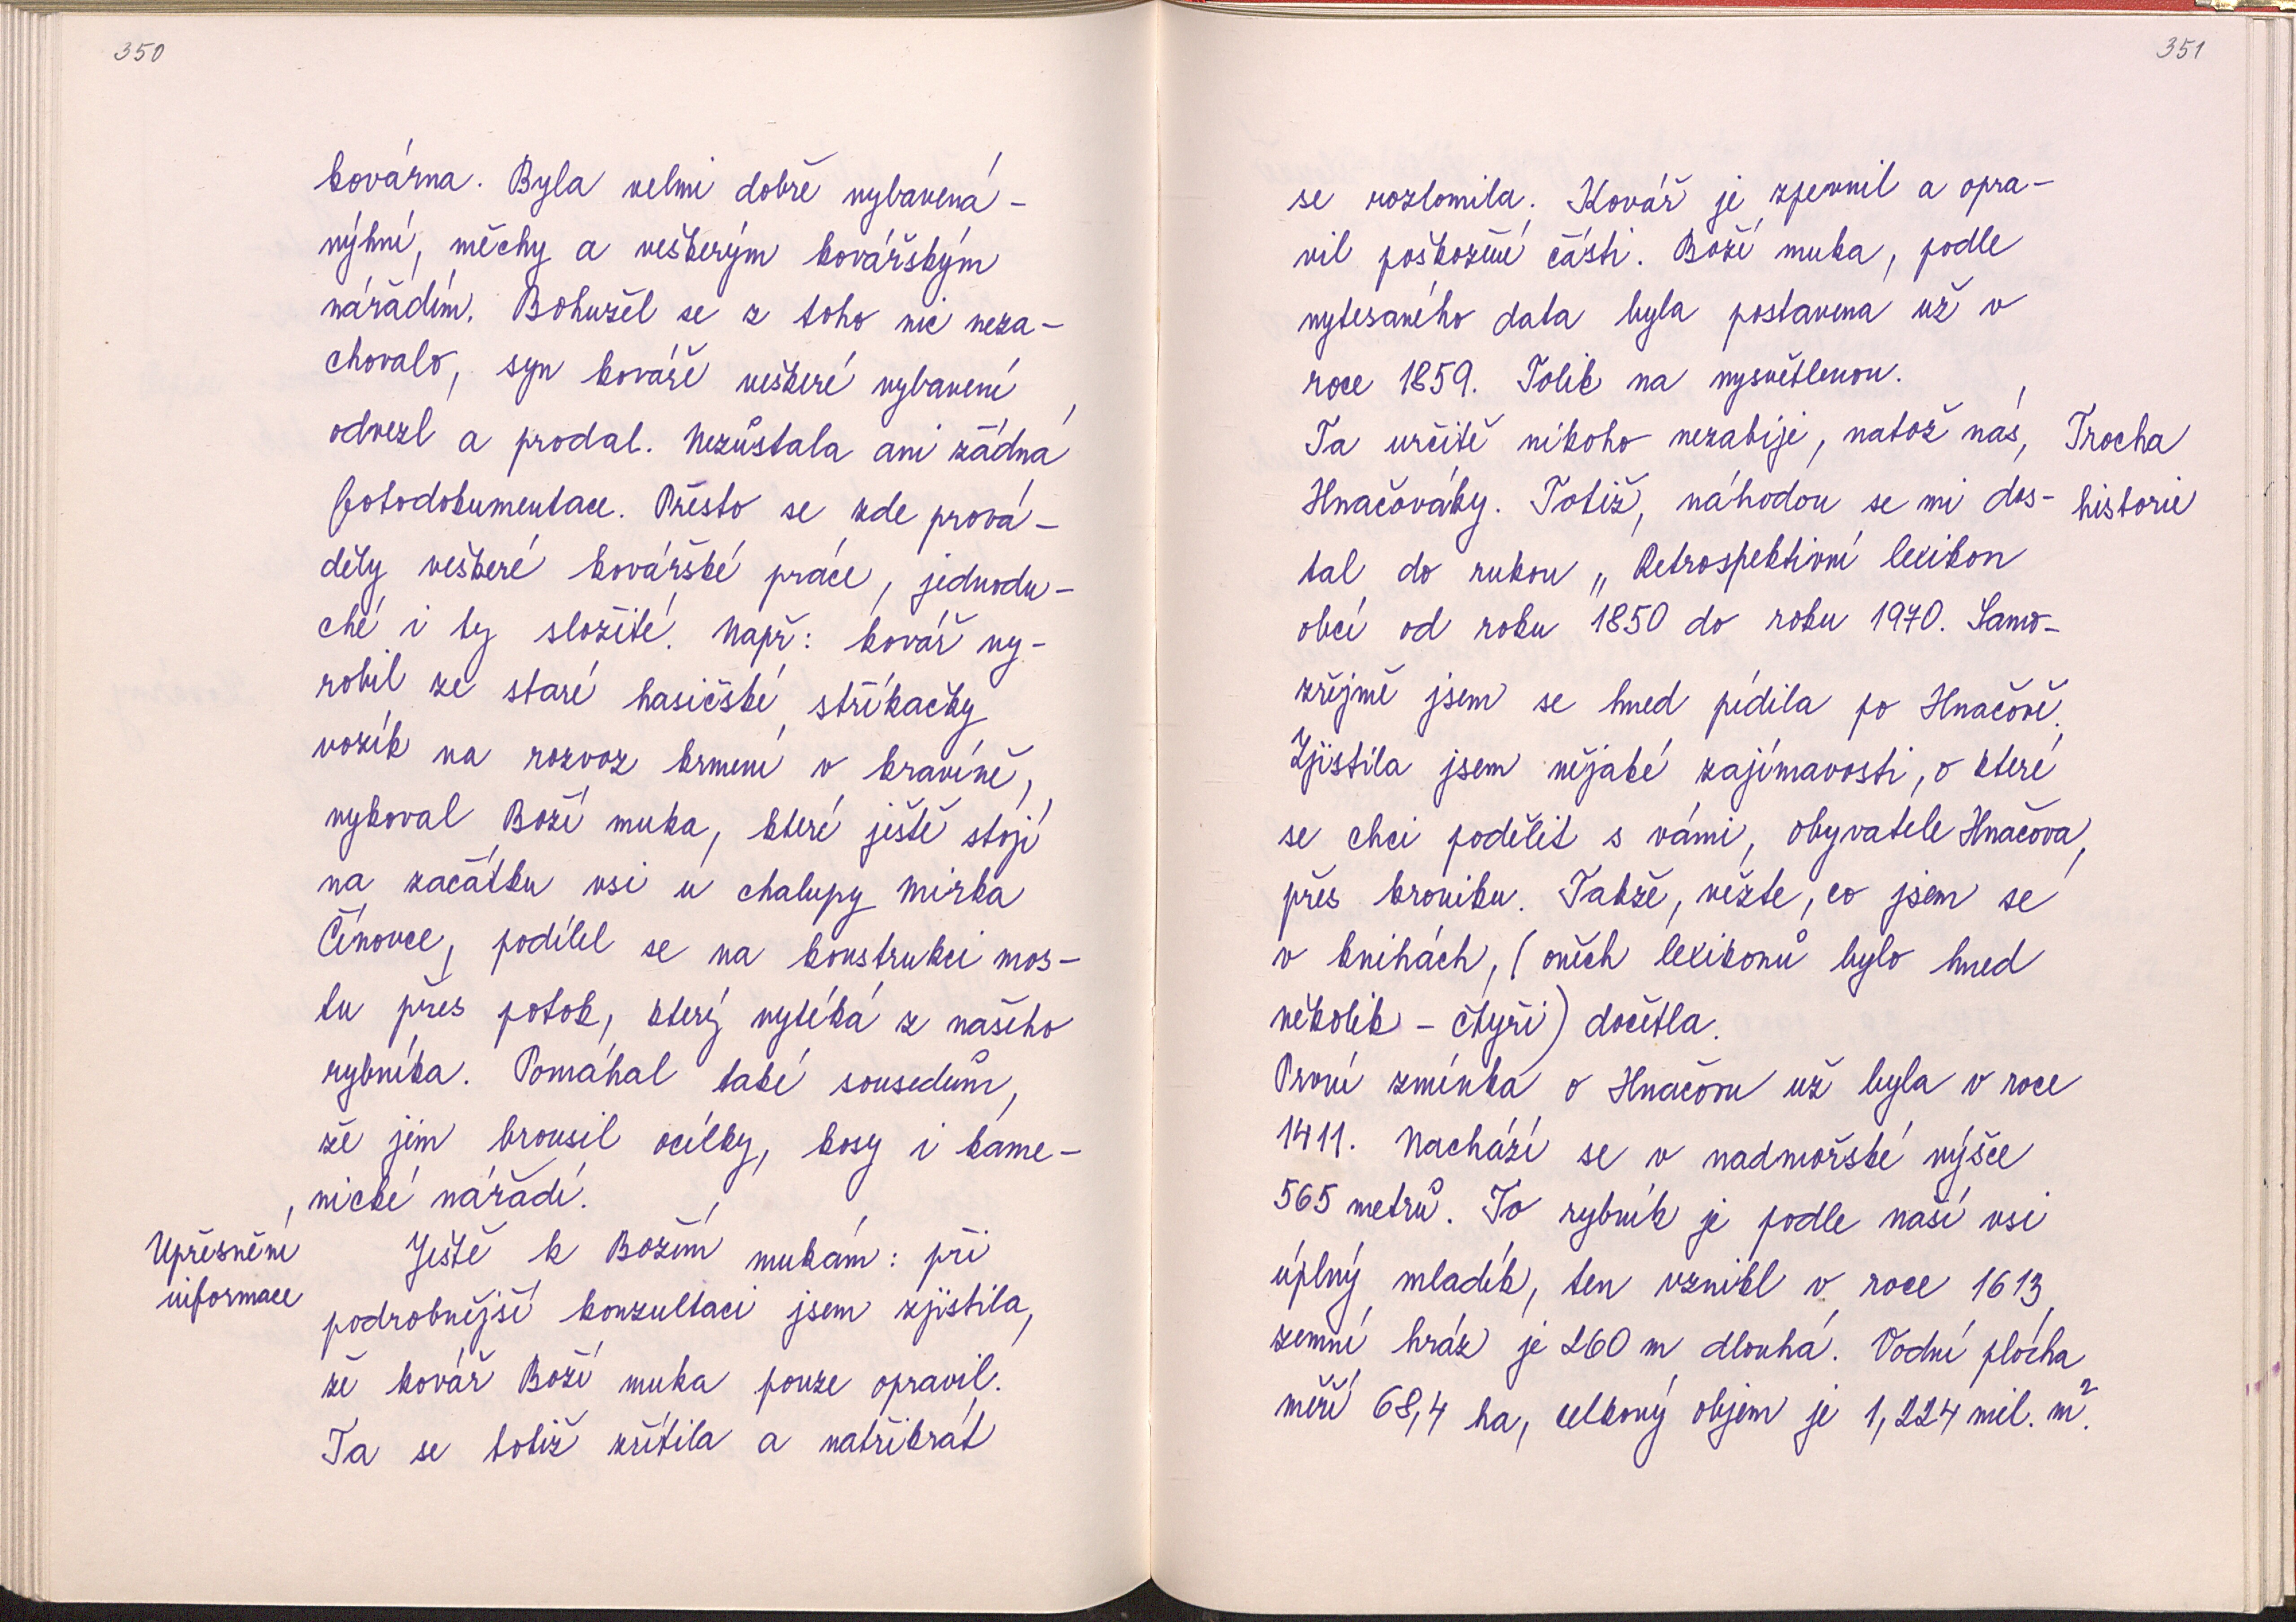 350
kovárna. Byla velmi dobře vybavená -
výhní, měchy a veškerým kovářským
nářadím. Bohužel se z toho nic neza-
chovalo, syn kováře veškeré vybavení
odvezl a prodal. Nezůstala ani žádná
fotodokumentace. Přesto se zde prová-
děly veškeré kovářské práce, jednodu-
ché i ty složité. Např: kovář vy-
robil ze staré hasičské stříkačky
vozík na rozvoz krmení v kravíně,
vykoval Boží muka, které ještě stojí
na začátku vsi u chalupy Mirka
Čínovce, podílel se na konstrukci mos-
tu přes potok, který vytéká z našeho
rybníka. Pomáhal také sousedům,
že jim brousil ocílky, kosy i kame-
nické nářadí.
Upřesnění
informace
Ještě k Božím mukám: při
podrobnější konzultaci jsem zjistila,
že kovář Boží muka pouze opravil.
Ta se totiž zřítila a natřikrát
351
se rozlomila. Kovář je zpevnil a opra-
vil poškozené části. Boží muka, podle
vytesaného data byla postavena už v
roce 1859. Tolik na vysvětlenou.
Trocha
historie
Ta určitě nikoho nezabije, natož nás,
Hnačováky. Totiž, náhodou se mi dos-
tal do rukou „Retrospektivní lexikon
obcí od roku 1850 do roku 1970. Samo-
zřejmě jsem se hned pídila po Hnačově.
Zjistila jsem nějaké zajímavosti, o které
se chci podělit s vámi, obyvatele Hnačova,
přes kroniku. Takže, vězte, co jsem se
v knihách, (oněch lexikonů bylo hned
několik - čtyři) dočetla.
První zmínka o Hnačovu už byla v roce
1411. Nachází se v nadmořské výšce
565 metrů. To rybník je podle naší vsi
úplný mladík, ten vznikl v roce 1613,
zemní hráz je 260 m dlouhá. Vodní plocha
měří 68,4 ha, celkový objem je 1,224 mil. m².